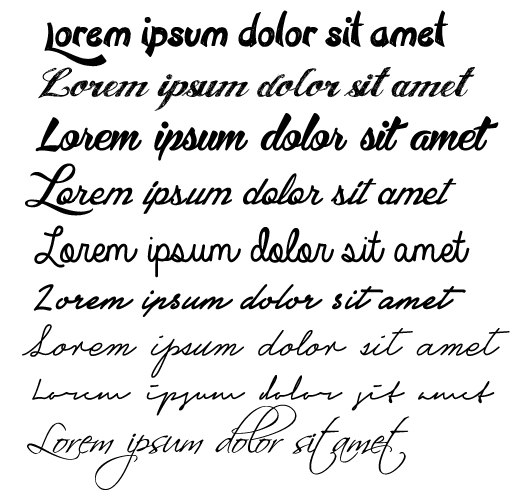 Lorem ipsum dolor sit amet
Lorem ipsum dolor sit amet
Lorem ipsum dolor sit amet
Lorem ipsum dolor sit amet
Lorem ipsum dolor sit amet
Lorem ipsum dolor sit amet
Lorem ipsum dolor sit amet
Lorem ipsum dolor sit amet
Lorem ipsum dolor sit amet